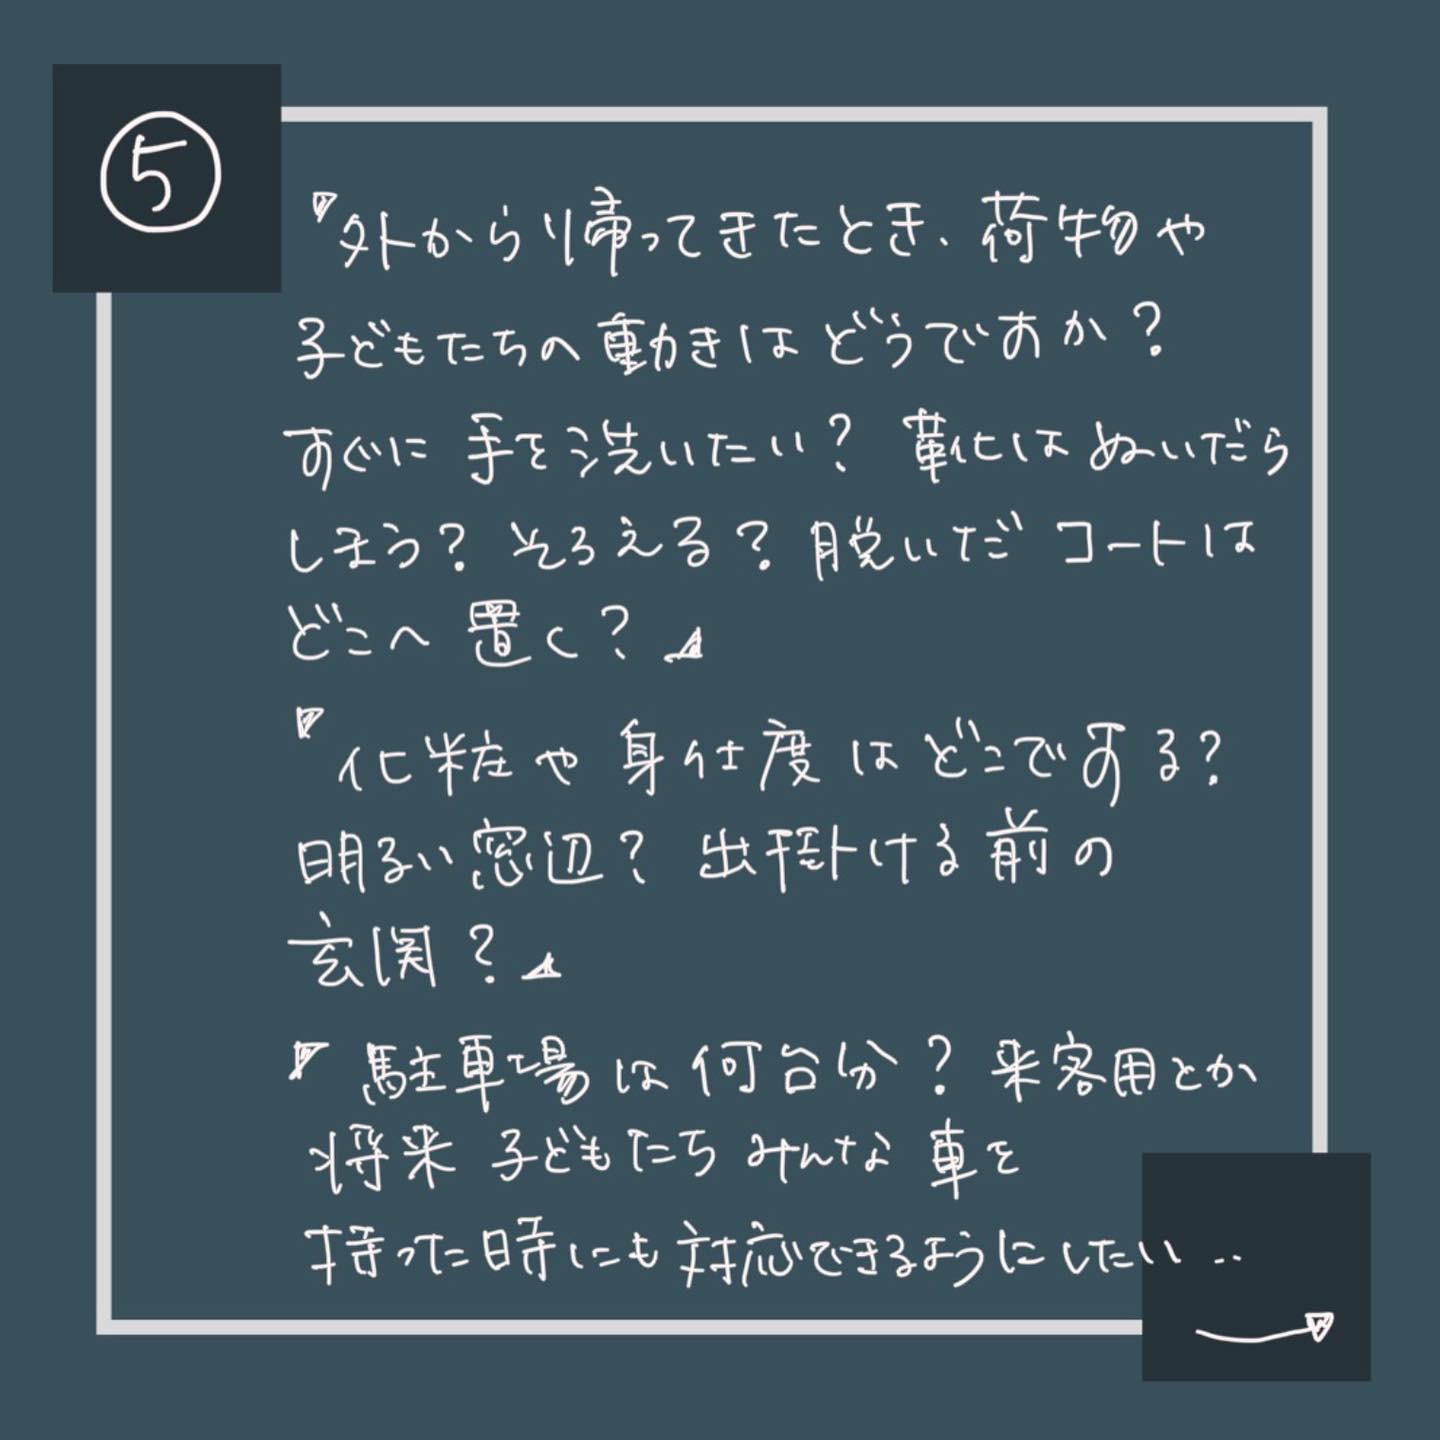 ⑤
『外から帰ってきたとき、荷物や
子どもたちの動きはどうですか？
すぐに手を洗いたい？靴はぬいだら
しまう？そろえる？脱いだコートは
どこへ置く？』
『化粧や身仕度はどこでする？
明るい窓辺？出掛ける前の
玄関？』
『駐車場は何台分？来客用とか
将来子どもたちみんな車を
持った時にも対応できるようにしたい‥